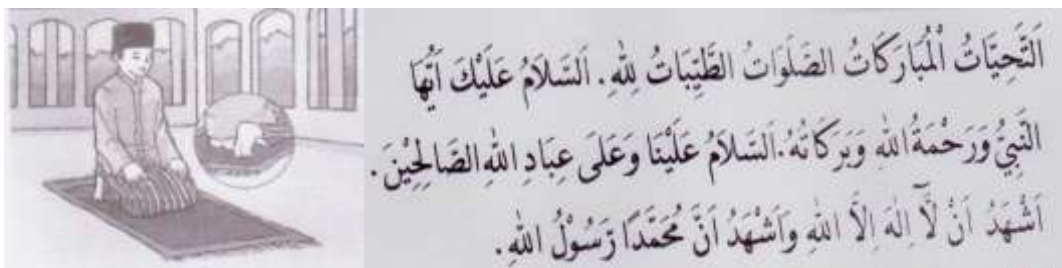 اَلتَّحِيَّاتُ الْمُبَارَكَاتُ الصَّلَوَاتُ الطَّيِّبَاتُ لِلّٰهِ. اَلسَّلَامُ عَلَيْكَ اَيُّهَا
النَّبِيُّ وَرَحْمَةُ اللهِ وَبَرَكَاتُهُ. اَلسَّلَامُ عَلَيْنَا وَعَلَى عِبَادِ اللهِ الصَّالِحِيْنَ.
اَشْهَدُ اَنْ لَّآ اِلٰهَ اِلَّا اللهِ وَاَشْهَدُ اَنَّ مُحَمَّدًا رَسُوْلُ اللهِ.